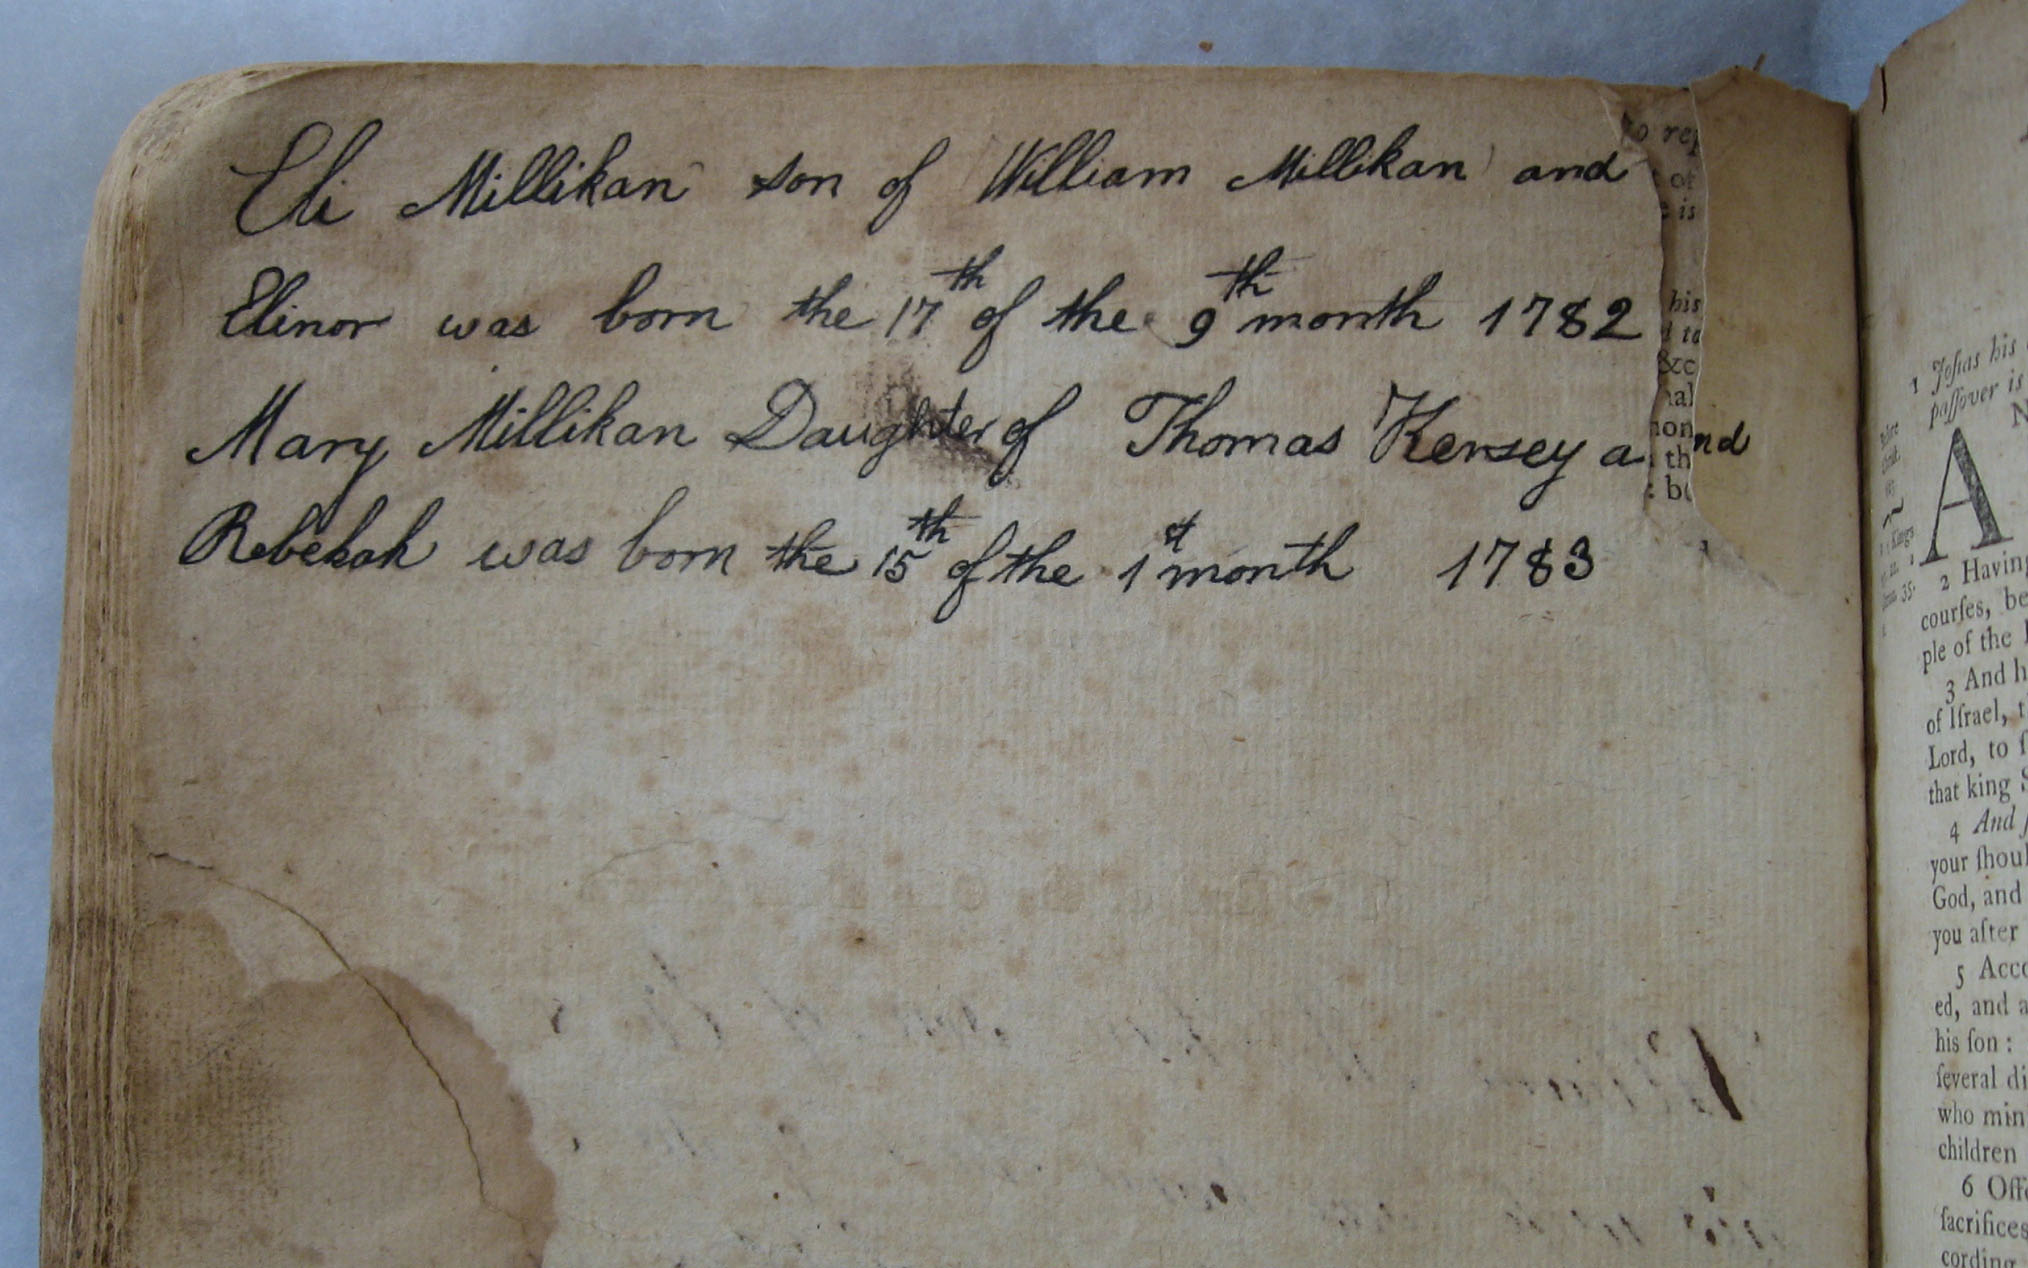 Eli Millikan son of William Millikan and
Elinor was born the 17th of the 9th month 1782
Mary Millikan Daughter of Thomas Kersey and
Rebekah was born the 15th of the 1st month 1783
to rep
of
is
his
d to
&c
nal
non
th
: be
1 Josias his
passover is
A N
2 Having
courses, be
ple of the
3 And h
of Israel, t
Lord, to
that king
4 And
your shoul
God, and
you after
5 Acco
ed, and a
his son :
several di
who min
children
6 Offe
sacrifices
cording